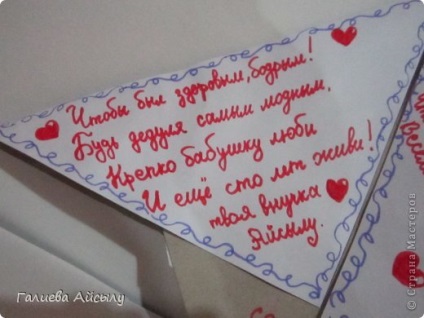 Чтобы был здоровым, бодрым!
Будь дедуля самым модным,
Крепко бабушку люби
И ещё сто лет живи!
твоя внучка
Айсылу.
Галиева Айсылу
© Страна Мастеров